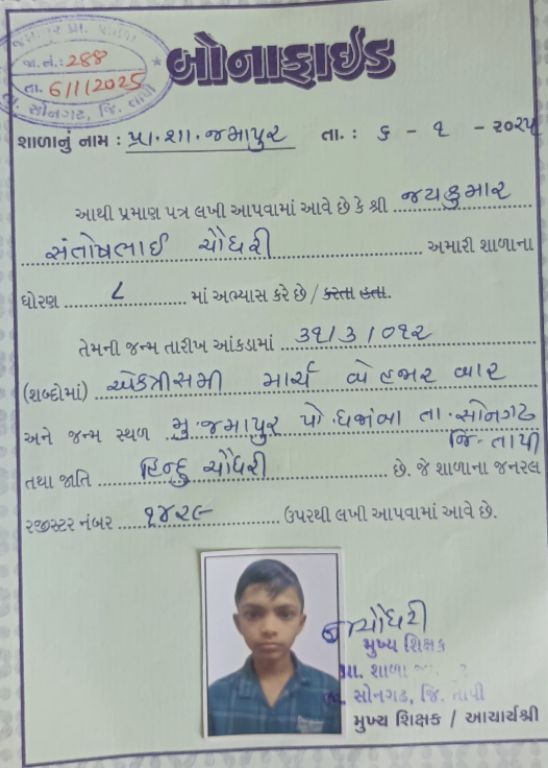 જમાપુર પ્રા. શાળા
જા.નં.: 288
તા. 6/1/2025
તા. સોનગઢ, જિ. તાપી
બોનાફાઈડ
શાળાનું નામ : પ્રા.શા.જમાપુર તા. : ૬ - ૧ - ૨૦૨૫
આથી પ્રમાણ પત્ર લખી આપવામાં આવે છે કે શ્રી જયકુમાર
સંતોષભાઈ ચૌધરી અમારી શાળાના
ધોરણ ૮ માં અભ્યાસ કરે છે / કરતા હતા.
તેમની જન્મ તારીખ આંકડામાં ૩૧/૩/૦૧૨
(શબ્દોમાં) એકત્રીસમી માર્ચ બે હજાર બાર
અને જન્મ સ્થળ મુ.જમાપુર પો.ધજાંબા તા.સોનગઢ
જિ-તાપી
તથા જાતિ હિન્દુ ચૌધરી છે. જે શાળાના જનરલ
રજીસ્ટર નંબર ૧૪૨૯ ઉપરથી લખી આપવામાં આવે છે.
ચૌધરી
મુખ્ય શિક્ષક
પ્રા. શાળા
તા. સોનગઢ, જિ. તાપી
મુખ્ય શિક્ષક / આચાર્યશ્રી